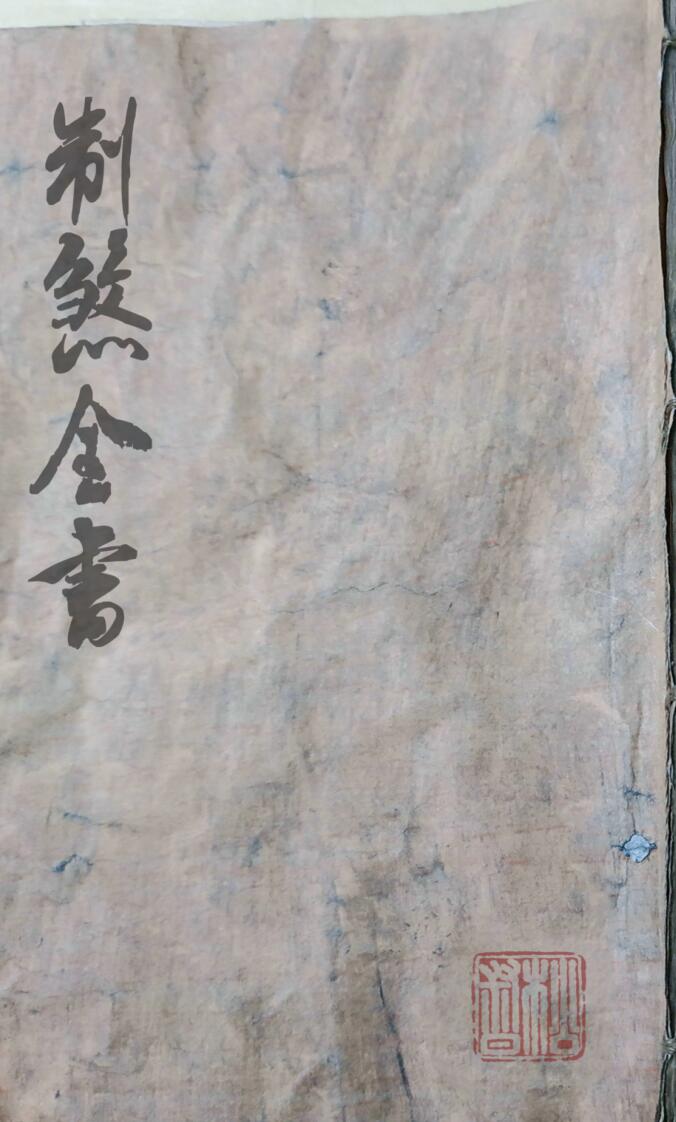 制煞全書